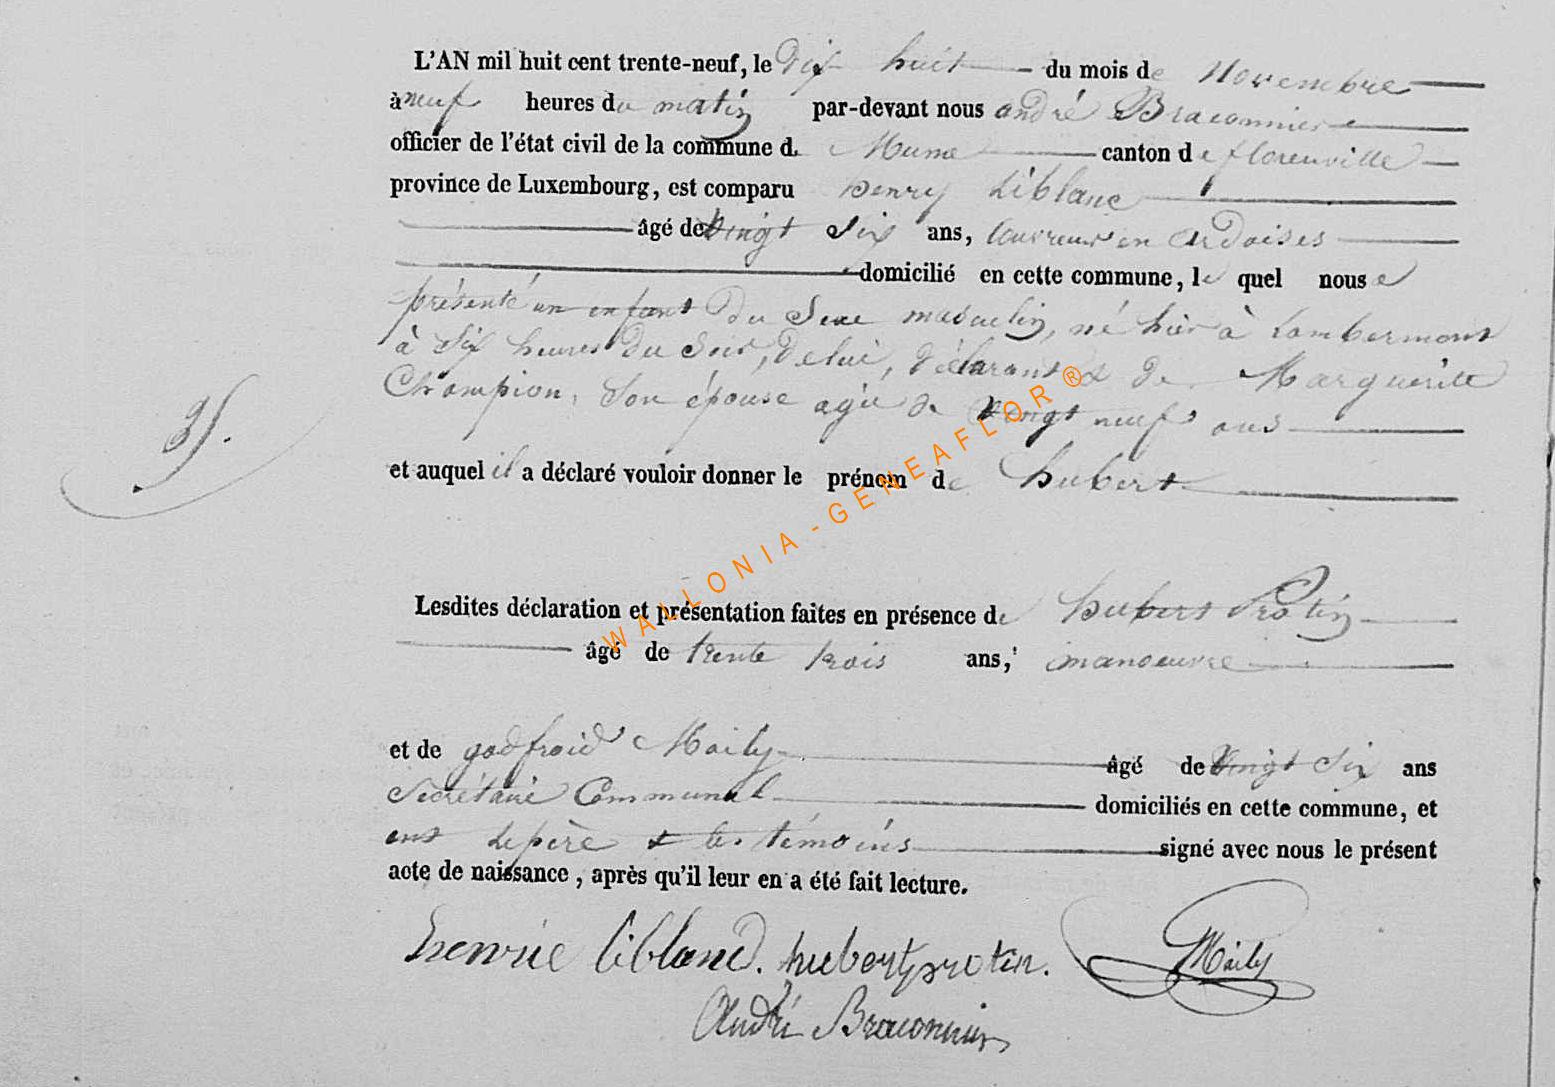 L'AN mil huit cent trente-neuf, le dix huit du mois de Novembre
à neuf heures du matin par-devant nous andré Braconnier
officier de l'état civil de la commune de Muno canton de florenville
province de Luxembourg, est comparu henry Liblanc
âgé de Vingt Six ans, Couvreur en Ardoises
domicilié en cette commune, le quel nous a
présenté un enfant du Sexe masculin, né hier à Lambermont
à Six heures du Soir, de lui, déclarant & de Marguerite
Champion, Son épouse agée de Vingt neuf ans
et auquel il a déclaré vouloir donner le prénom de hubert
Lesdites déclaration et présentation faites en présence de hubert Protin
âgé de trente trois ans, manoeuvre
et de godfroid Maily âgé de Vingt Six ans
Secrétaire Communal domiciliés en cette commune, et
ont Le père & les témoins signé avec nous le présent
acte de naissance, après qu'il leur en a été fait lecture.
henrie libland. hubert protin. Maily
André Braconnier
WALLONIA - GENEAFLOR ®